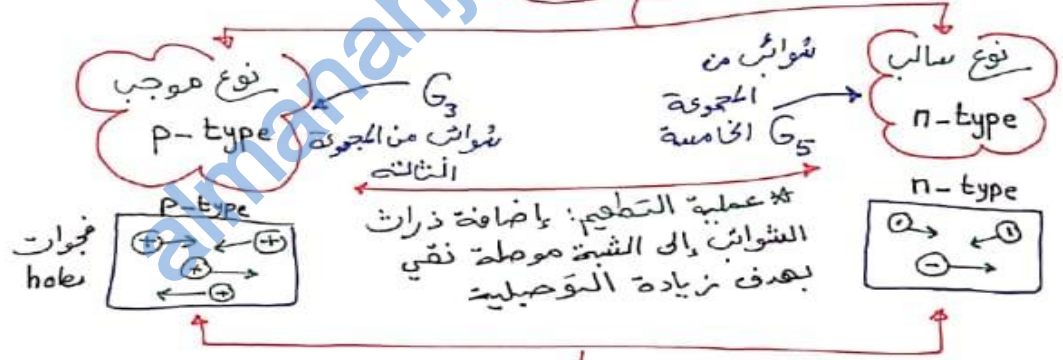 نوع موجب
p-type
G3
شوائب من المجموعة
الثالثه
شوائب من
المجموعة
الخامسة G5
نوع سالب
n-type
p-type
فجوات
holes
+ +
+
+
*عملية التطعيم: إضافة ذرات
الشوائب إلى الشبة موصلة نقي
بهدف زيادة التوصيلية
n-type
-
almanahj